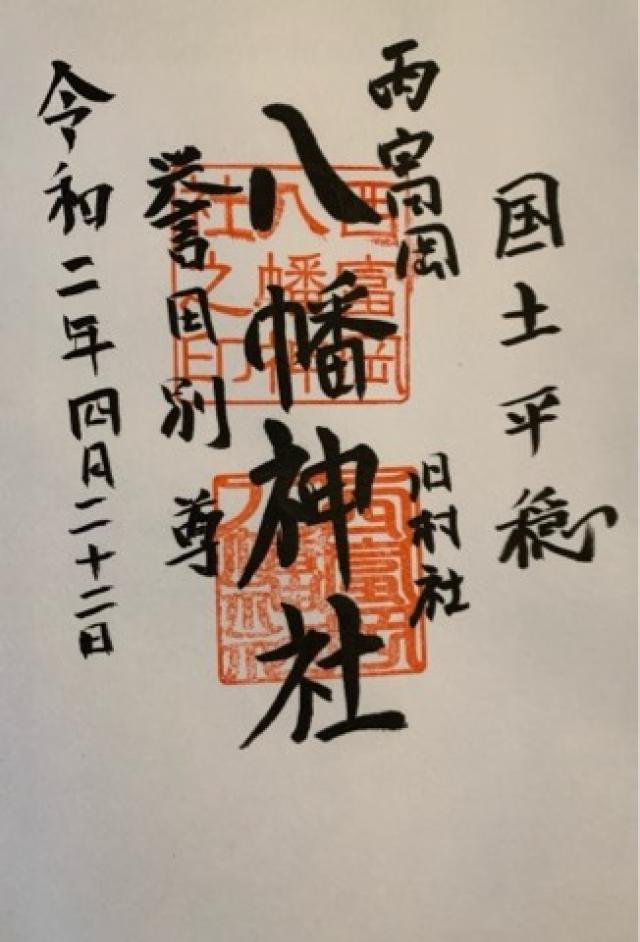 国土平穏
西富岡
旧村社
八幡神社
誉田別尊
令和二年四月二十二日
西富岡
八幡神
社之印